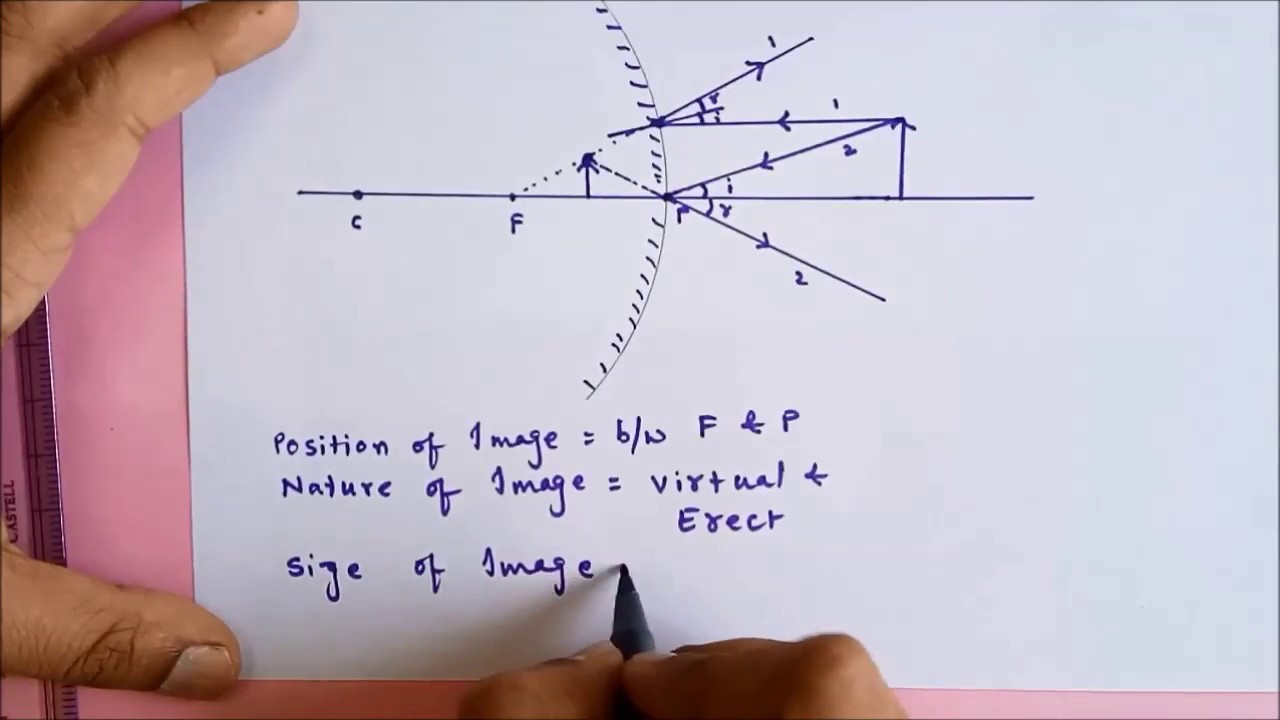 1
r
i
1
2
i
r
C
F
P
2
Position of Image = b/w F & P
Nature of Image = virtual &
Erect
Size of Image
CASTELL